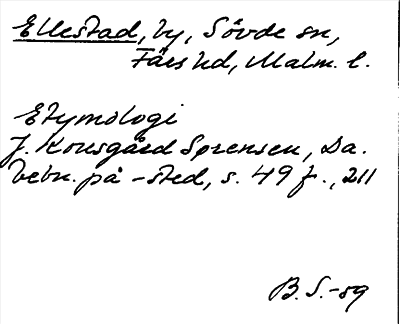 Ellestad, by, Sövde sn,
Färs hd, Malm. l.
Etymologi
J. Kousgård Sørensen, Da.
bebn. på -sted, s. 49 f., 211
B. S. -89